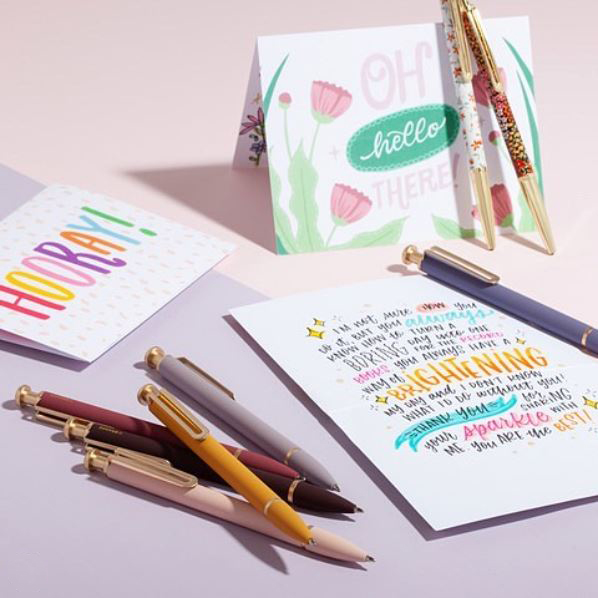 OH
hello
THERE!
HOORAY!
I'M NOT SURE HOW YOU
DO IT, BUT YOU always
KNOW HOW TO TURN A
BORING DAY INTO ONE
FOR THE RECORD
BOOKS YOU ALWAYS HAVE A
WAY OF BRIGHTENING
MY DAY AND I DON'T KNOW
WHAT I'D DO WITHOUT YOU!
THANK YOU for SHARING
your sparkle WITH
ME YOU ARE the BEST!